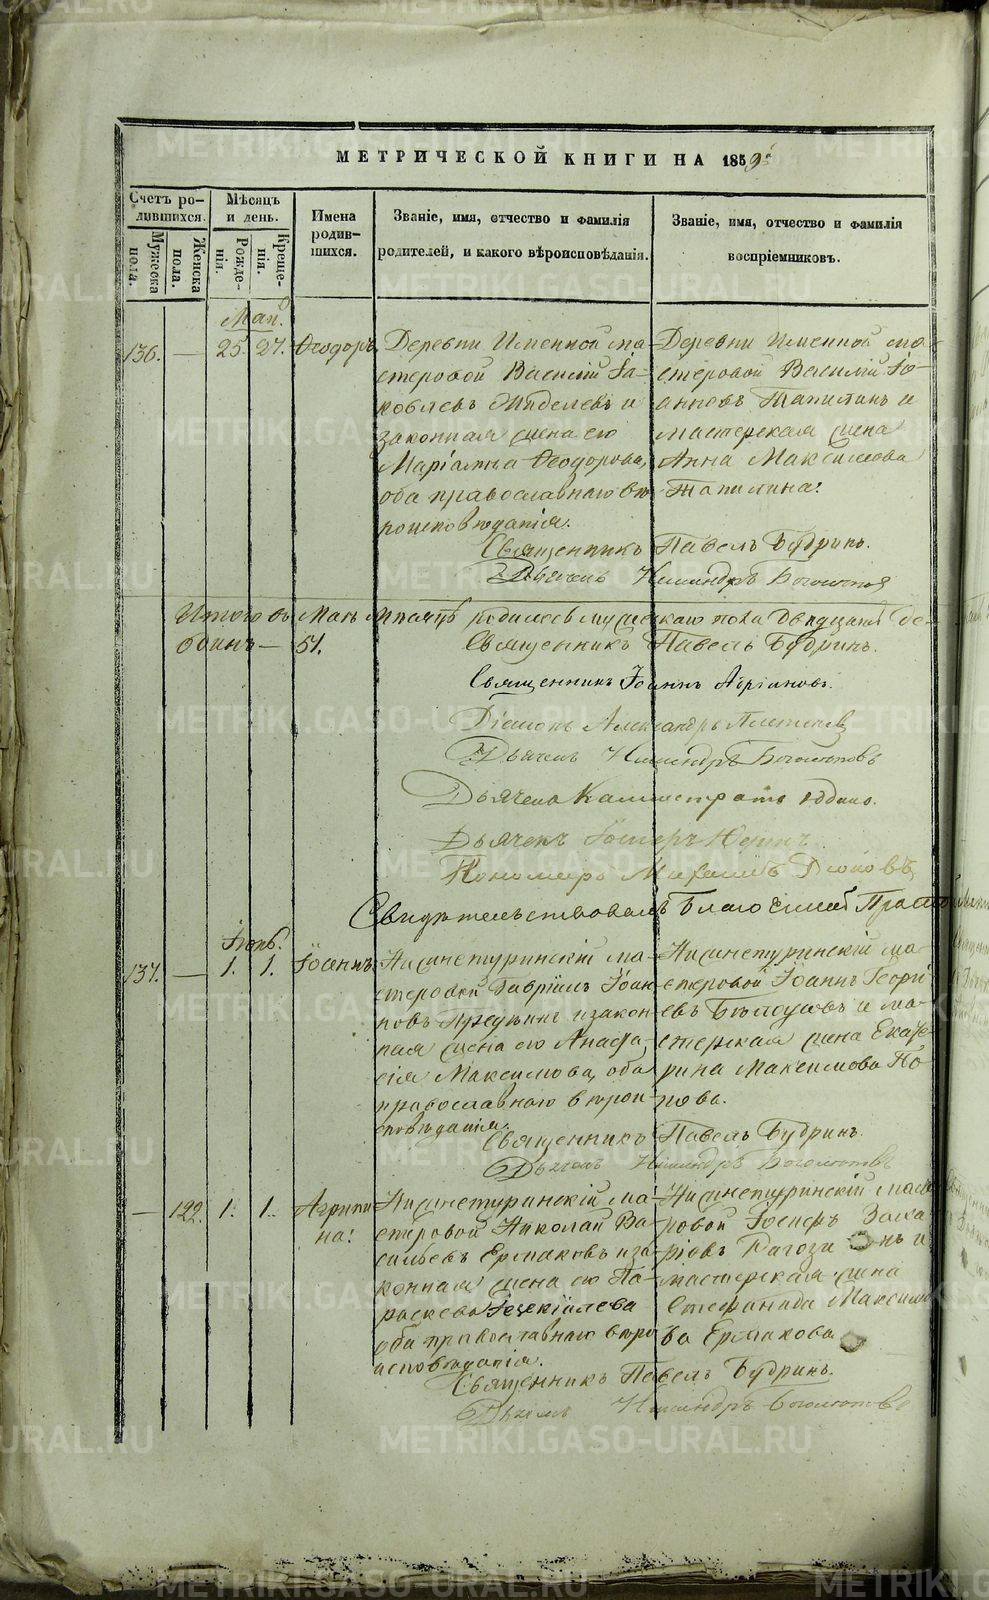 МЕТРИЧЕСКОЙ КНИГИ НА 1859
Счетъ ро-
дившихся.
Мужеска
пола.
Женска
пола.
Мѣсяцъ
и день.
Рожде-
нія.
Креще-
нія.
Имена
родив-
шихся.
Званіе, имя, отчество и фамилія
родителей, и какого вѣроисповѣданія.
Званіе, имя, отчество и фамилія
воспріемниковъ.
Маія
136. — 25. 27. Ѳеодоръ
Деревни Именной ма-
стеровой Василій Іа-
ковлевъ и
законная жена его
Маріамна Ѳеодорова,
оба православнаго вѣ-
роисповѣданія.
Деревни Именной ма-
стеровой Василій Іо-
анновъ Тапилинъ и
мастерская жена
Анна Максимова
Тапилина.
Священникъ Павелъ Будринъ.
Дьячекъ Никандръ
Итого въ Маѣ мѣсяцѣ родилось мужескаго пола двадцать
— 51.
Священникъ Павелъ Будринъ.
Священникъ Іоаннъ Адріановъ.
Діаконъ Александръ
Дьячекъ Никандръ
Дьячекъ Каллистратъ
Дьячекъ
Пономарь Михаилъ
Свидѣтельствовалъ Благочинный
Іюнь.
137. — 1. 1. Іоаннъ
Нижнетуринскій ма-
стеровой Гавріилъ Іоан-
новъ и закон-
ная жена его Анаста-
сія Максимова, оба
православнаго вѣрои-
сповѣданія.
Нижнетуринскій ма-
стеровой Іоаннъ Георгі-
евъ и ма-
стерская жена Екате-
рина Максимова По-
пова.
Священникъ Павелъ Будринъ.
Дьячекъ Никандръ
— 122. 1. 1. Агрипи-
на.
Нижнетуринскій ма-
стеровой Николай Ва-
сильевъ Ермаковъ и за-
конная жена его Па-
раскева Іезекіилева
оба православнаго вѣро
исповѣданія.
Нижнетуринскій масте
ровой Іосифъ Заха-
ріовъ Рагозинъ и
мастерская жена
Стефанида Максимо
ва Ермакова
Священникъ Павелъ Будринъ.
Дьячекъ Никандръ
METRIKI.GASO-URAL.RU